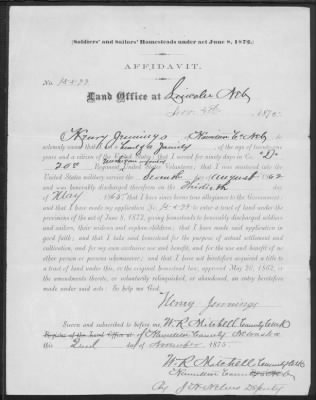 (Soldiers' and Sailors' Homesteads under act June 8, 1872.)
AFFIDAVIT.
No.
Land Office at Lowell Neb
187
I, Henry Jennings, of Hamilton Co Neb do
solemnly swear that I am head of a family of the age of twenty-one
years and a citizen of the United States; that I served for ninety days in Co. D
20th Regiment United States Volunteers; that I was mustered into the
United States military service the Seventh day of August 1862
and was honorably discharged therefrom on the Thirtieth day
of May 1865 that I have since borne true allegiance to the Government;
and that I have made my application No. to enter a tract of land under the
provisions of the act of June 8, 1872, giving homesteads to honorably discharged soldiers
and sailors, their widows and orphan children; that I have made said application in
good faith; and that I take said homestead for the purpose of actual settlement and
cultivation, and for my own exclusive use and benefit, and for the use and benefit of no
other person or persons whomsoever; and that I have not heretofore acquired a title to
a tract of land under this, or the original homestead law, approved May 20, 1862, or
the amendments thereto, or voluntarily relinquished, or abandoned, an entry heretofore
made under said acts: So help me God.
Henry Jennings
Sworn and subscribed to before me, W. R. Mitchell County Clerk
Register of the Land Office at Hamilton County Nebraska
this 2nd day of November 1875
W. R. Mitchell County Clerk
Hamilton County
By Deputy